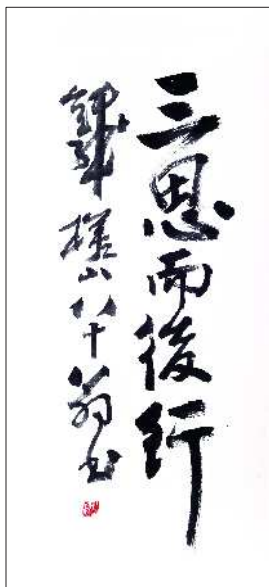 三思而後行
山八十翁書